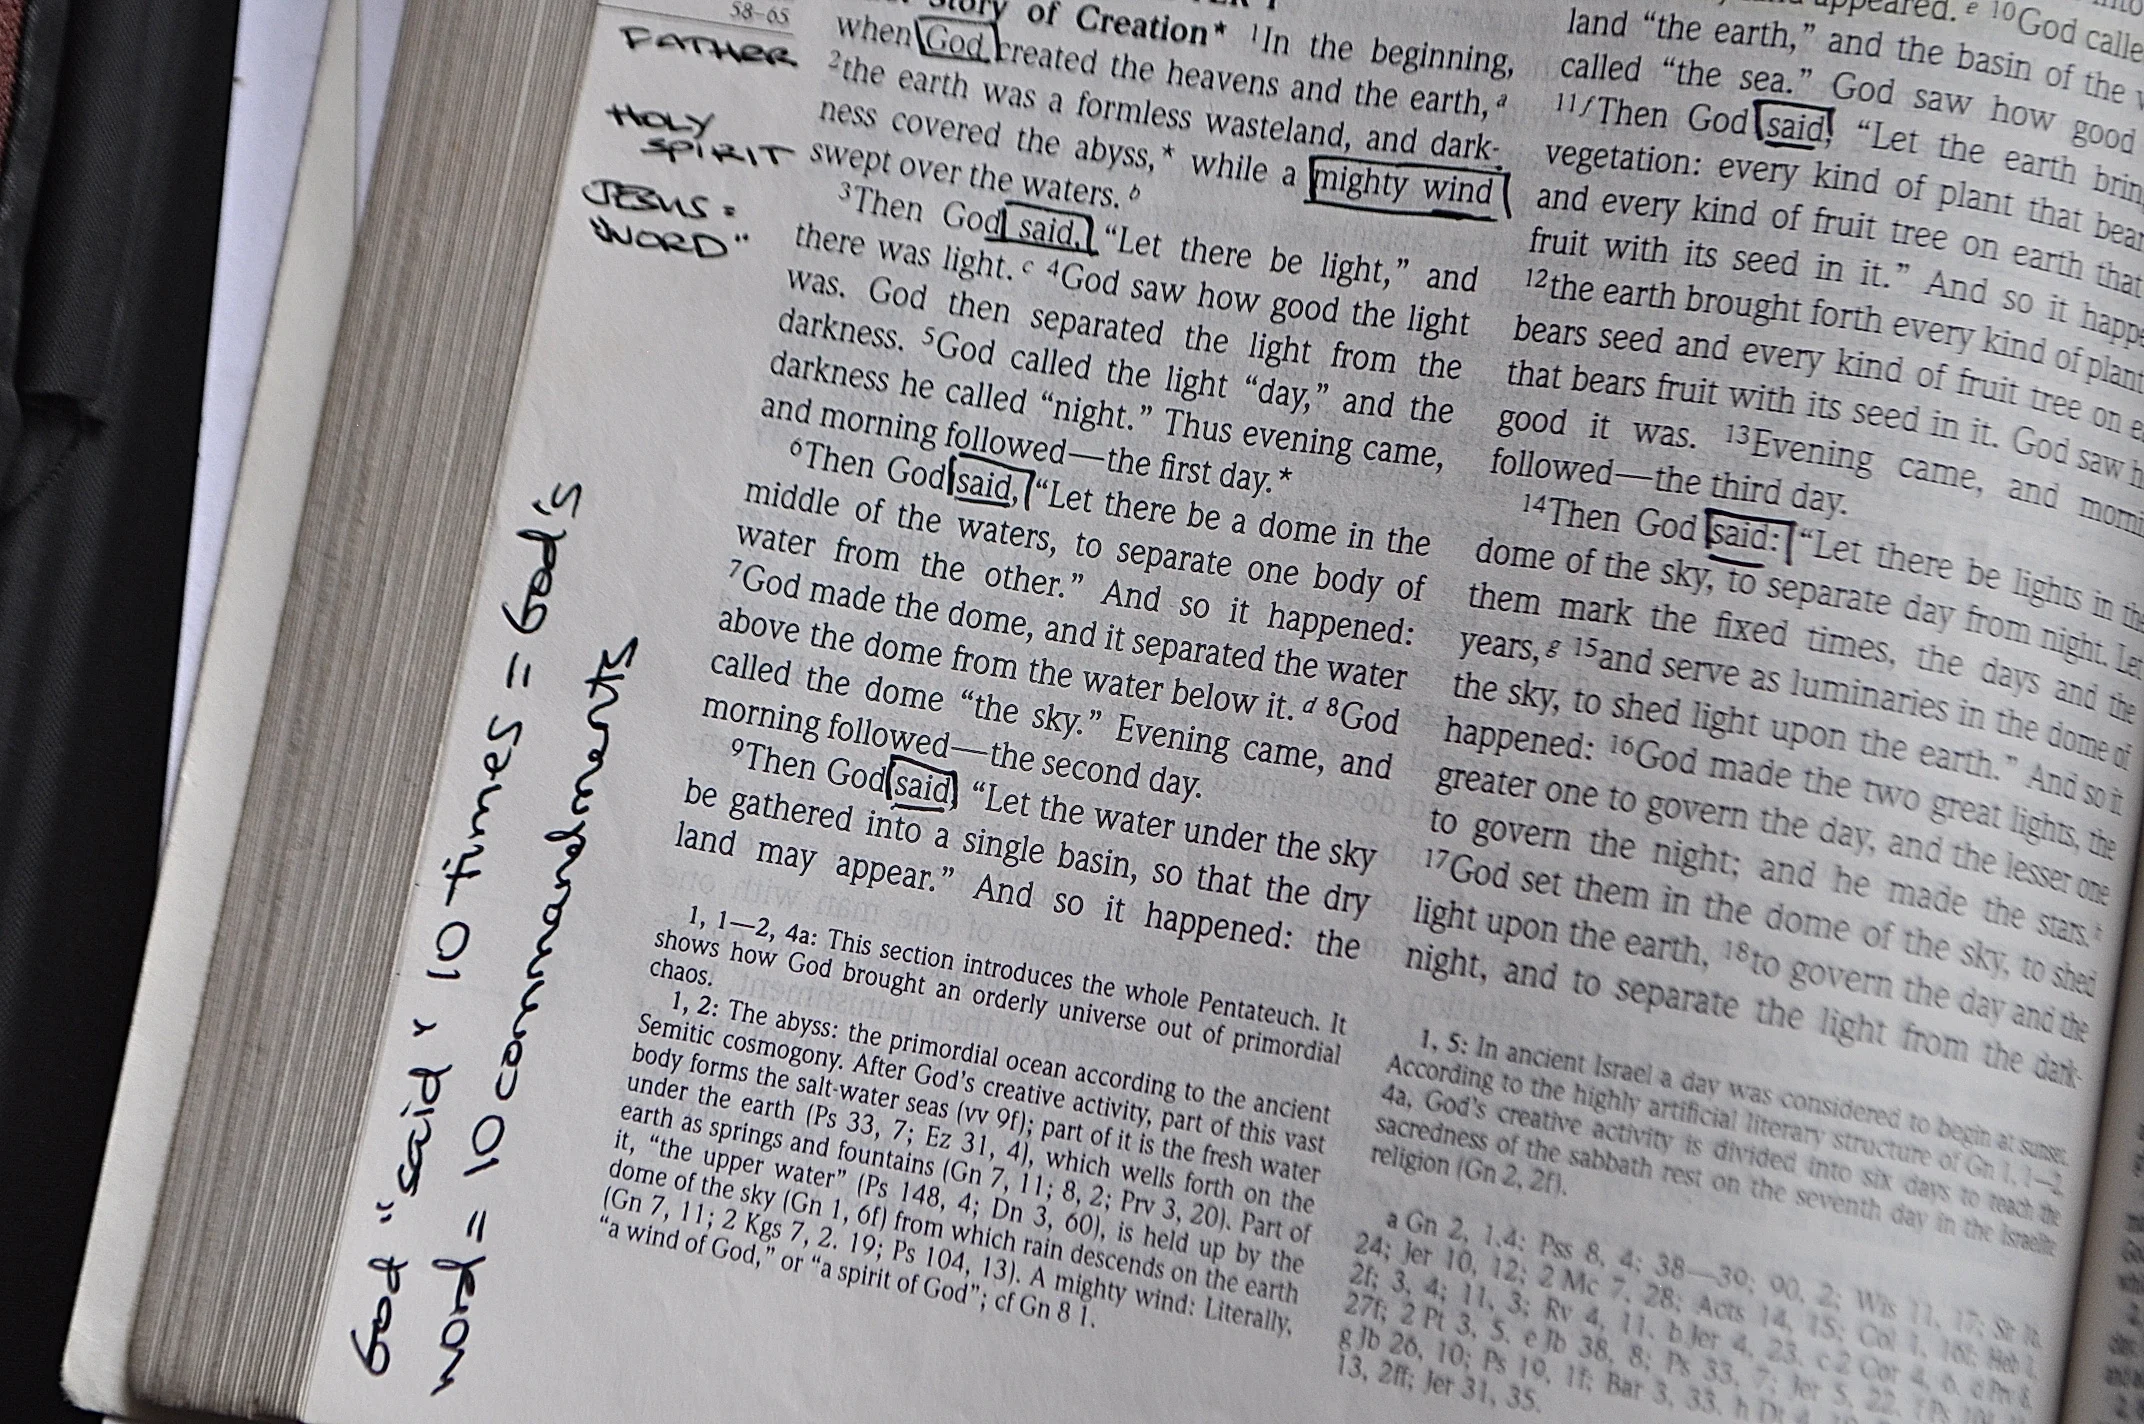 58–65
FATHER
HOLY
SPIRIT
JESUS =
"WORD"
God "said" 10 times = God's
word = 10 commandments
Story of Creation* 1In the beginning,
when God created the heavens and the earth, a
2the earth was a formless wasteland, and dark-
ness covered the abyss,* while a mighty wind
swept over the waters. b
3Then God said, “Let there be light,” and
there was light. c 4God saw how good the light
was. God then separated the light from the
darkness. 5God called the light “day,” and the
darkness he called “night.” Thus evening came,
and morning followed—the first day.*
6Then God said, “Let there be a dome in the
middle of the waters, to separate one body of
water from the other.” And so it happened:
7God made the dome, and it separated the water
above the dome from the water below it. d 8God
called the dome “the sky.” Evening came, and
morning followed—the second day.
9Then God said, “Let the water under the sky
be gathered into a single basin, so that the dry
land may appear.” And so it happened: the
1, 1—2, 4a: This section introduces the whole Pentateuch. It
shows how God brought an orderly universe out of primordial
chaos.
1, 2: The abyss: the primordial ocean according to the ancient
Semitic cosmogony. After God's creative activity, part of this vast
body forms the salt-water seas (vv 9f); part of it is the fresh water
under the earth (Ps 33, 7; Ez 31, 4), which wells forth on the
earth as springs and fountains (Gn 7, 11; 8, 2; Prv 3, 20). Part of
it, “the upper water” (Ps 148, 4; Dn 3, 60), is held up by the
dome of the sky (Gn 1, 6f) from which rain descends on the earth
(Gn 7, 11; 2 Kgs 7, 2. 19; Ps 104, 13). A mighty wind: Literally,
“a wind of God,” or “a spirit of God”; cf Gn 8 1.
appeared. e 10God calle
land “the earth,” and the basin of the
called “the sea.” God saw how good
11fThen God said, “Let the earth brin
vegetation: every kind of plant that bear
and every kind of fruit tree on earth that
fruit with its seed in it.” And so it happe
12the earth brought forth every kind of plant
bears seed and every kind of fruit tree on e
that bears fruit with its seed in it. God saw h
good it was. 13Evening came, and morni
followed—the third day.
14Then God said: “Let there be lights in the
dome of the sky, to separate day from night. Let
them mark the fixed times, the days and the
years, g 15and serve as luminaries in the dome of
the sky, to shed light upon the earth.” And so it
happened: 16God made the two great lights, the
greater one to govern the day, and the lesser one
to govern the night; and he made the stars.
17God set them in the dome of the sky, to shed
light upon the earth, 18to govern the day and the
night, and to separate the light from the dark-
1, 5: In ancient Israel a day was considered to begin at sunset.
According to the highly artificial literary structure of Gn 1, 1—2,
4a, God's creative activity is divided into six days to teach the
sacredness of the sabbath rest on the seventh day in the Israelite
religion (Gn 2, 2f).
a Gn 2, 1.4; Pss 8, 4; 38—39; 90, 2; Wis 11, 17; Sir
24; Jer 10, 12; 2 Mc 7, 28; Acts 14, 15; Col 1, 16f; Heb 1,
2f; 3, 4; 11, 3; Rv 4, 11. b Jer 4, 23. c 2 Cor 4, 6. d Prv 8,
27f; 2 Pt 3, 5. e Jb 38, 8; Ps 33, 7; Jer 5, 22.
g Jb 26, 10; Ps 19, 1f; Bar 3, 33. h Dt 4,
13, 2ff; Jer 31, 35.